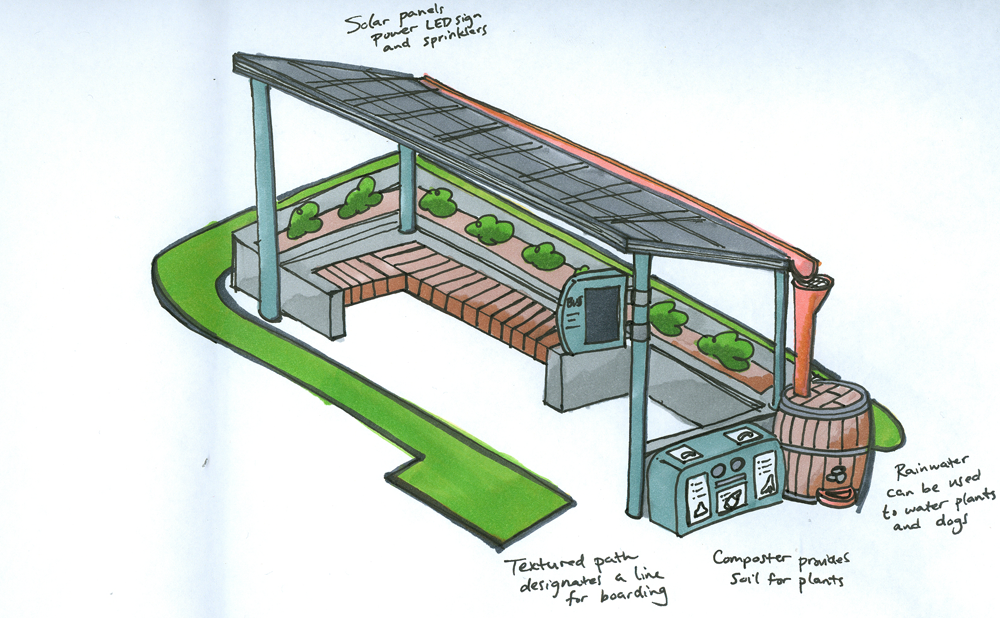 Solar panels
power LED sign
and sprinklers
BUS
Rainwater
can be used
to water plants
and dogs
Textured path
designates a line
for boarding
Composter provides
Soil for plants